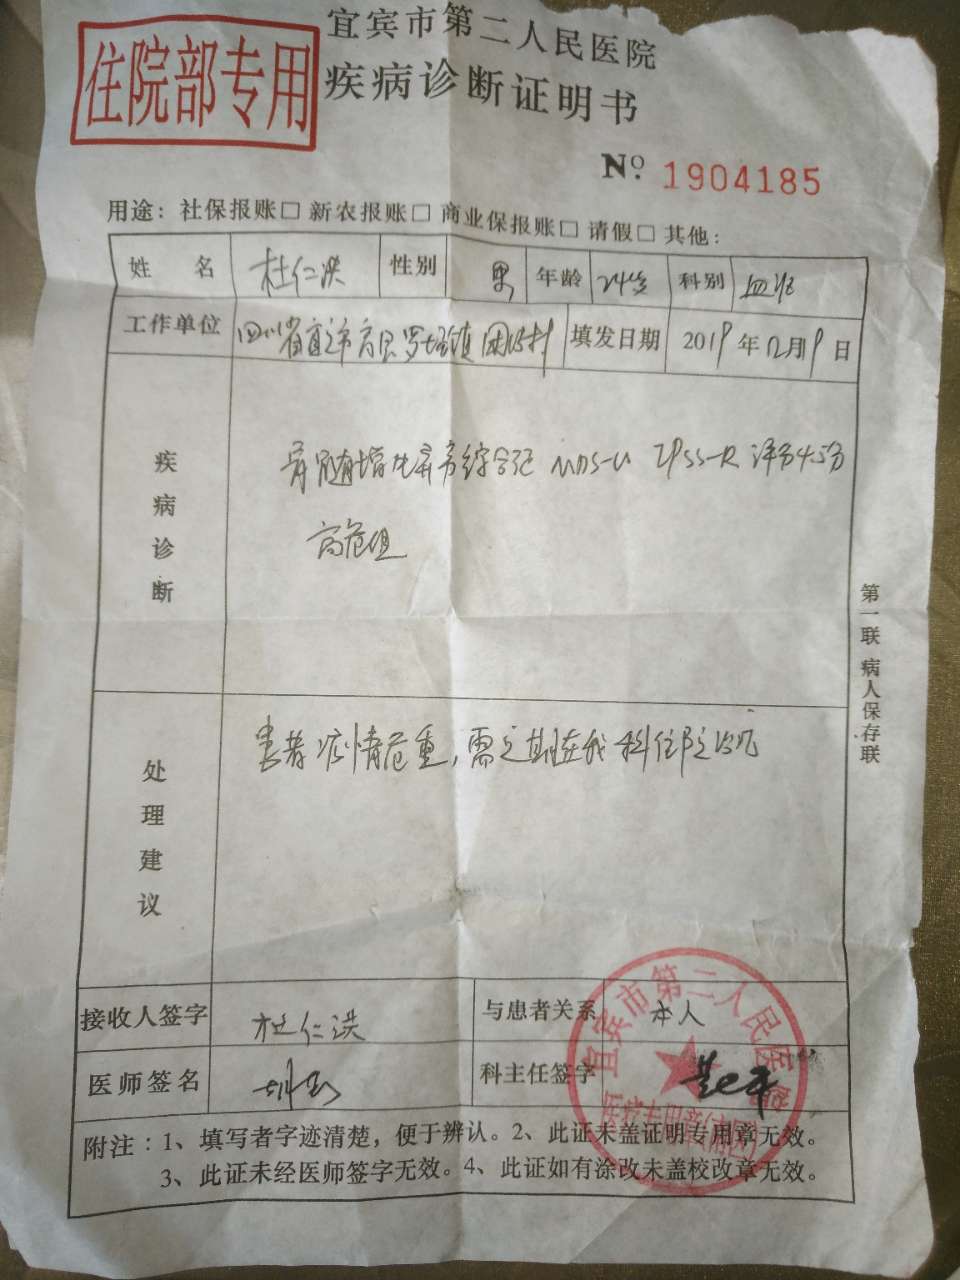 住院部专用
宜宾市第二人民医院
疾病诊断证明书
No. 1904185
用途：社保报账□ 新农报账□ 商业保报账□ 请假□ 其他：
姓名 杜仁洪 性别 男 年龄 24岁 科别 血液
工作单位 四川省宜宾市 填发日期 2019年12月19日
疾病诊断
骨髓增生异常综合征 MDS-U IPSS-R 评分4.5分
高危组
处理建议
患者病情危重，需定期在我科住院治疗
接收人签字 杜仁洪 与患者关系 本人
医师签名 科主任签字
宜宾市第二人民医院
附注：1、填写者字迹清楚，便于辨认。2、此证未盖证明专用章无效。
3、此证未经医师签字无效。4、此证如有涂改未盖校改章无效。
第一联 病人保存联